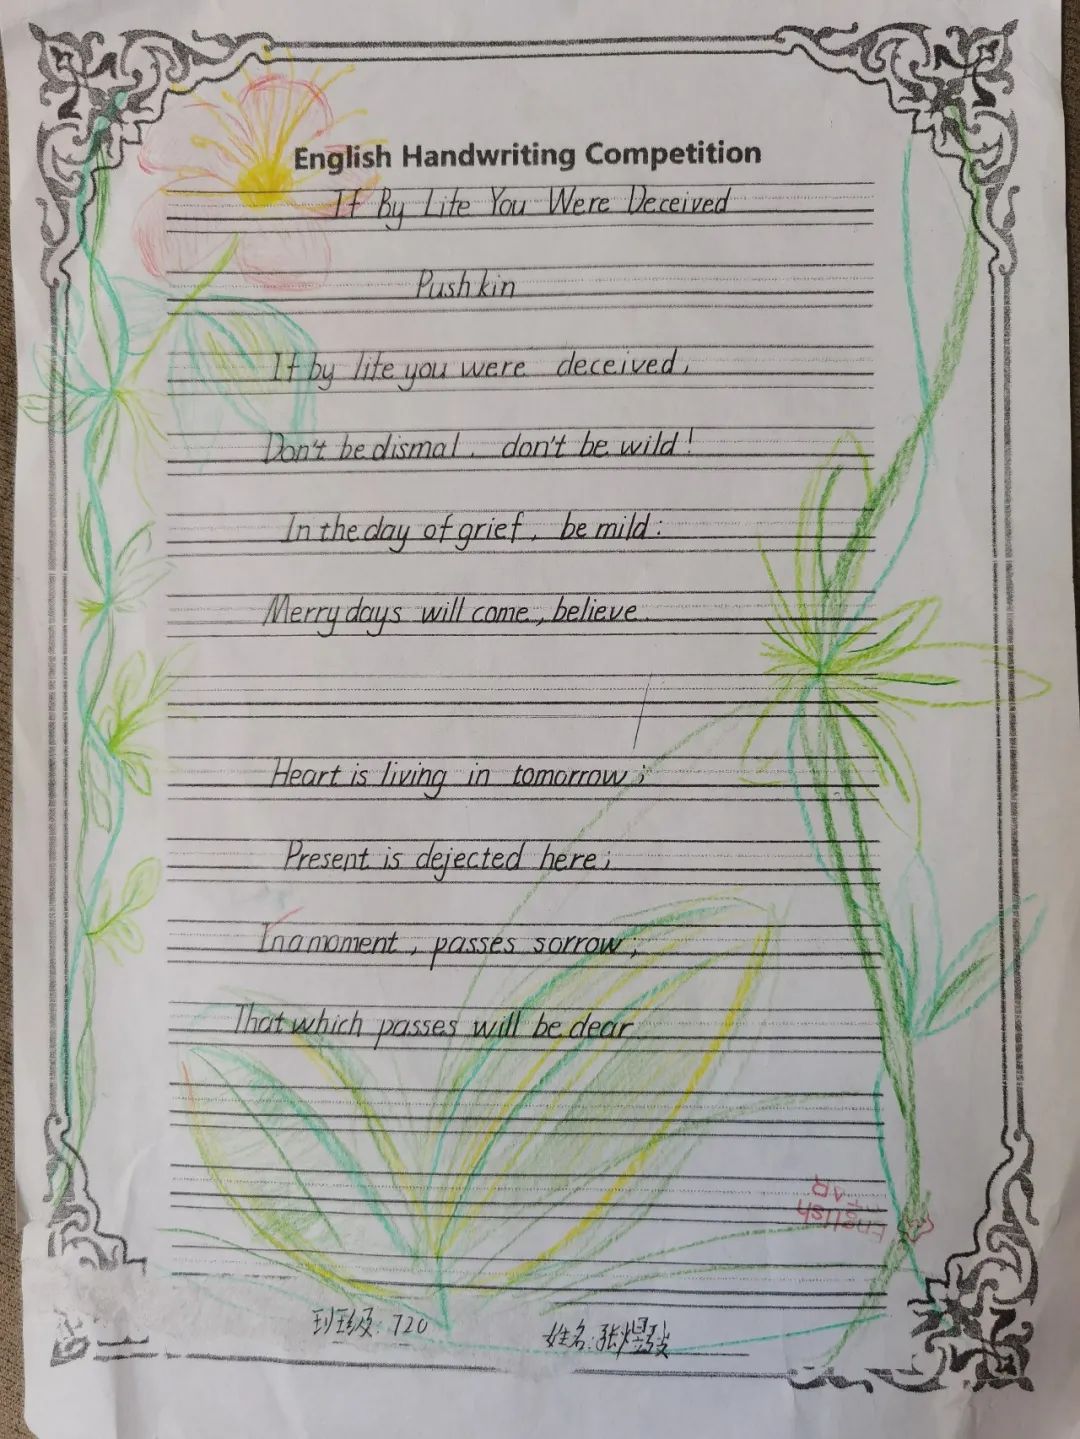 English Handwriting Competition
If By Life You Were Deceived
Pushkin
If by life you were deceived,
Don't be dismal, don't be wild!
In the day of grief, be mild:
Merry days will come, believe.
Heart is living in tomorrow;
Present is dejected here;
In a moment, passes sorrow;
That which passes will be dear.
English
班级: 720
姓名: 张煜